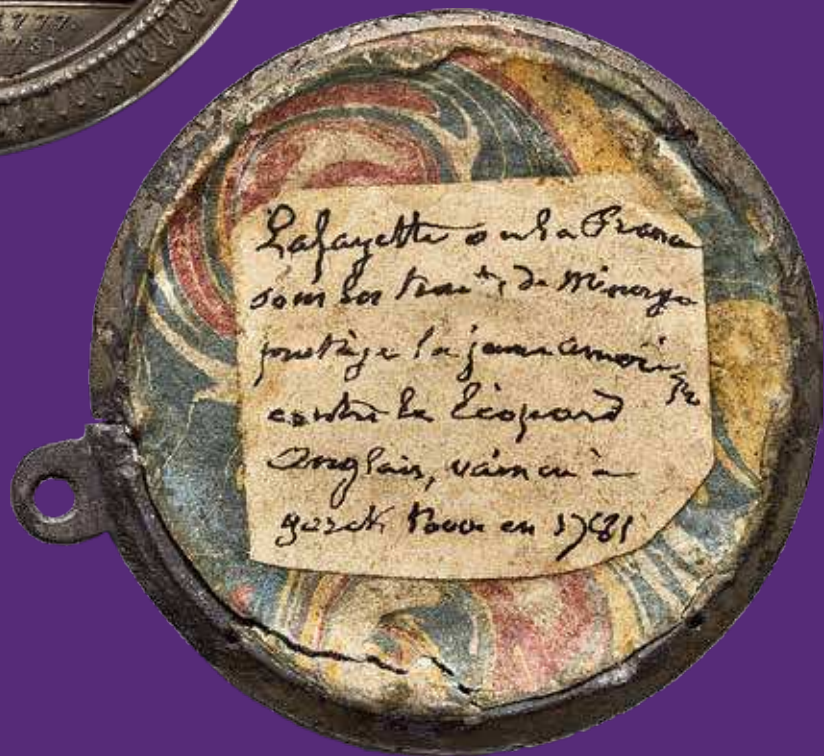 Lafayette ou la France
sous les trait^s de Minerve
protège la jeune améri
que
contre le Léopard
Anglais, vaincu à
York Town en 1781